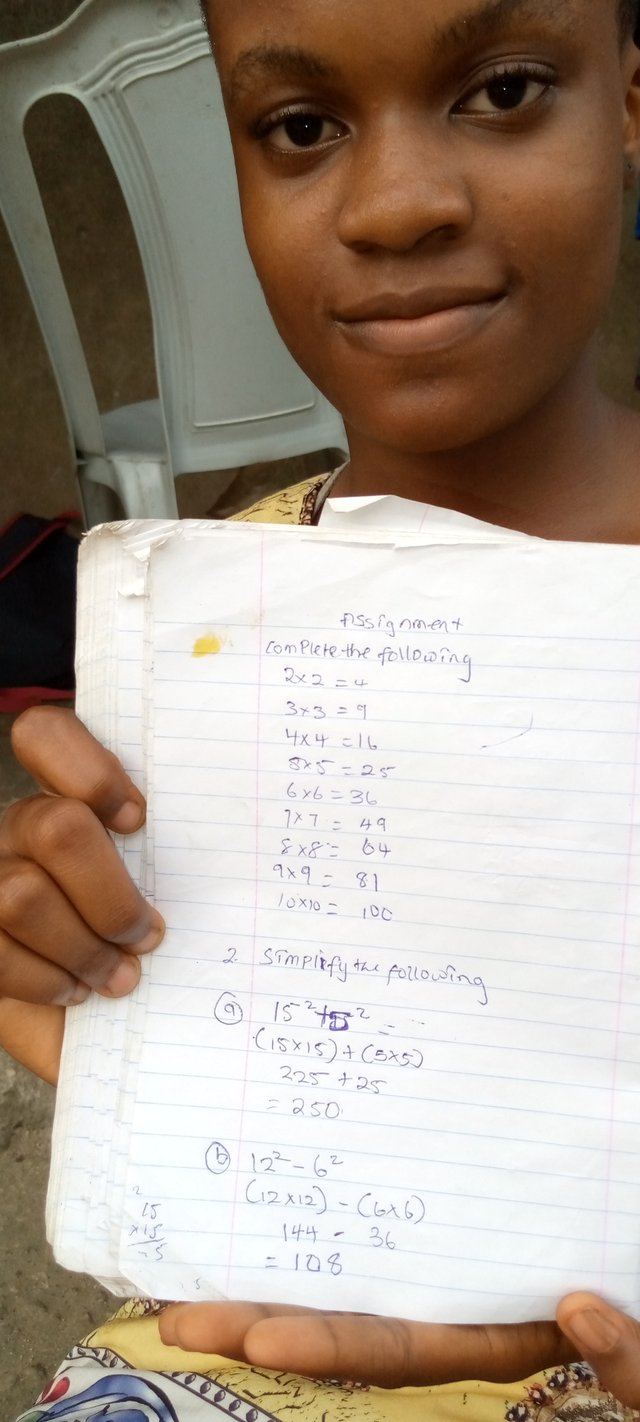 Assignment
Complete the following
2×2 = 4
3×3 = 9
4×4 = 16
5×5 = 25
6×6 = 36
7×7 = 49
8×8 = 64
9×9 = 81
10×10 = 100
2. Simplify the following
(a) 15² + 5² =
(15×15) + (5×5)
225 + 25
= 250
(b) 12² - 6²
(12×12) - (6×6)
144 - 36
= 108
2
15
×15
5